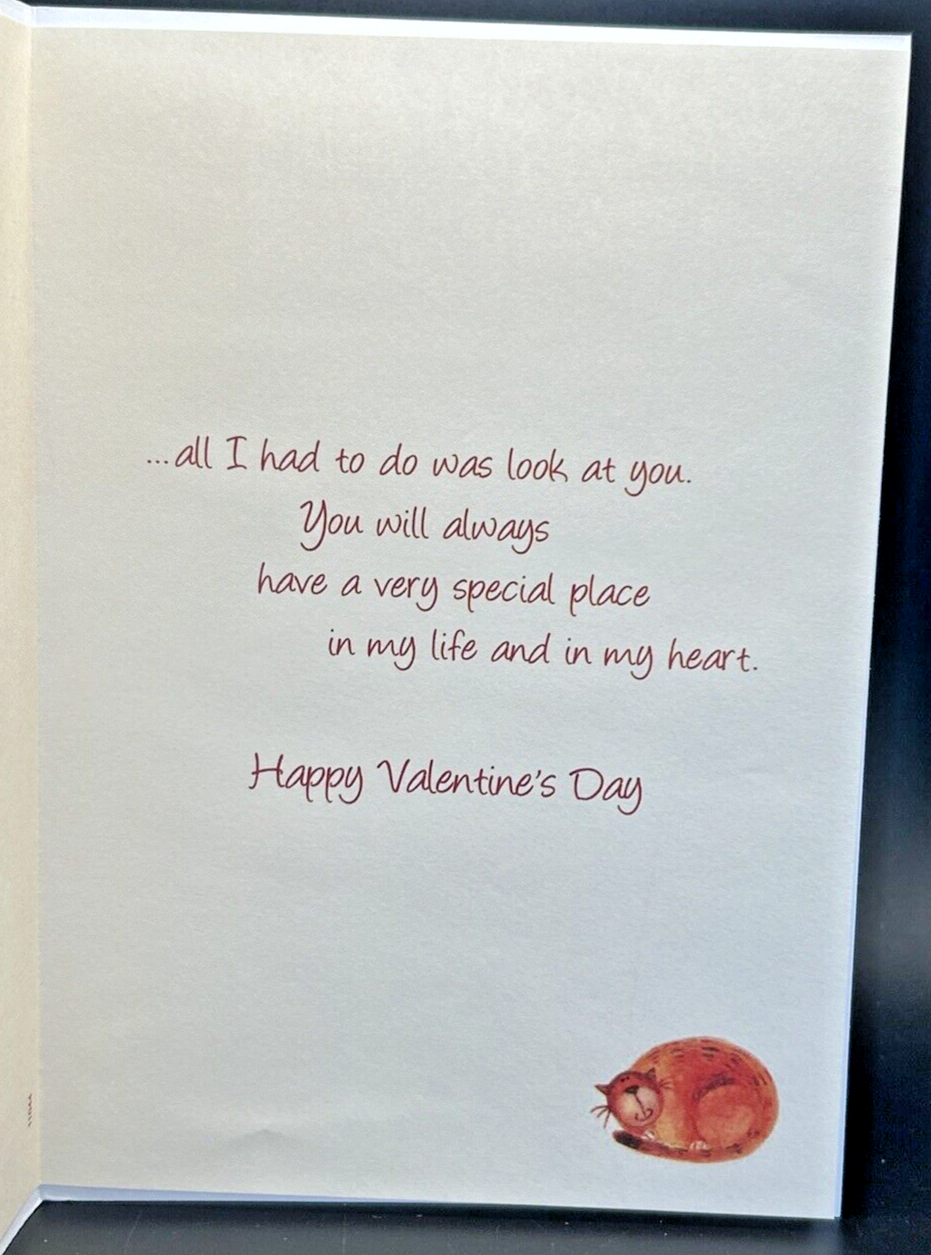 ...all I had to do was look at you.
You will always
have a very special place
in my life and in my heart.
Happy Valentine's Day